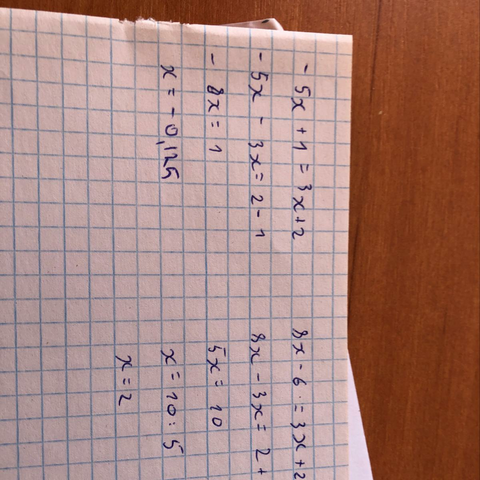 - 5x + 1 = 3x + 2
- 5x - 3x = 2 - 1
- 8x = 1
x = - 0,125
8x - 6 = 3x + 2
8x - 3x = 2 +
5x = 10
x = 10 : 5
x = 2